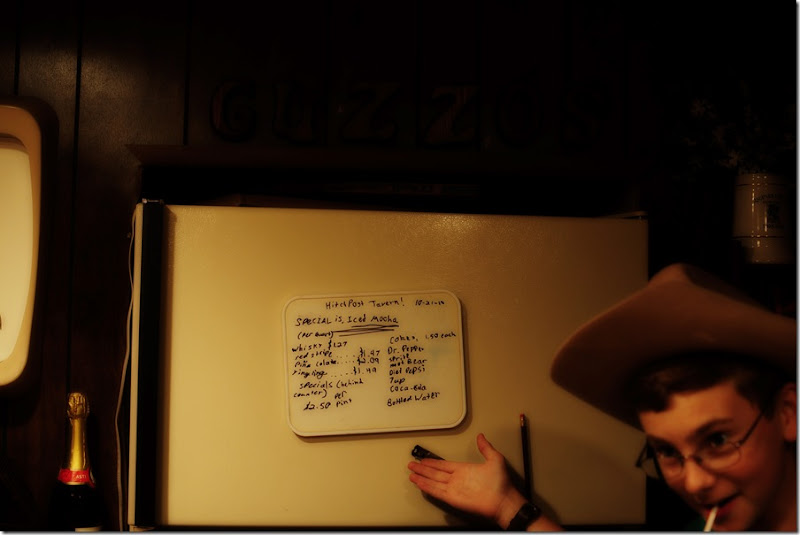 GUZZOS
HitchPost Tavern!
SPECIAL is, Iced Mocha
whisky $1.27
red stripe $1.47
Piña colata $2.09
$1.49
Specials (behind
counter) Per
$2.50 Pint
1.50 each
Dr. Pepper
Sprite
root Bear
Diet Pepsi
7up
Coca-Cola
Bottled Water